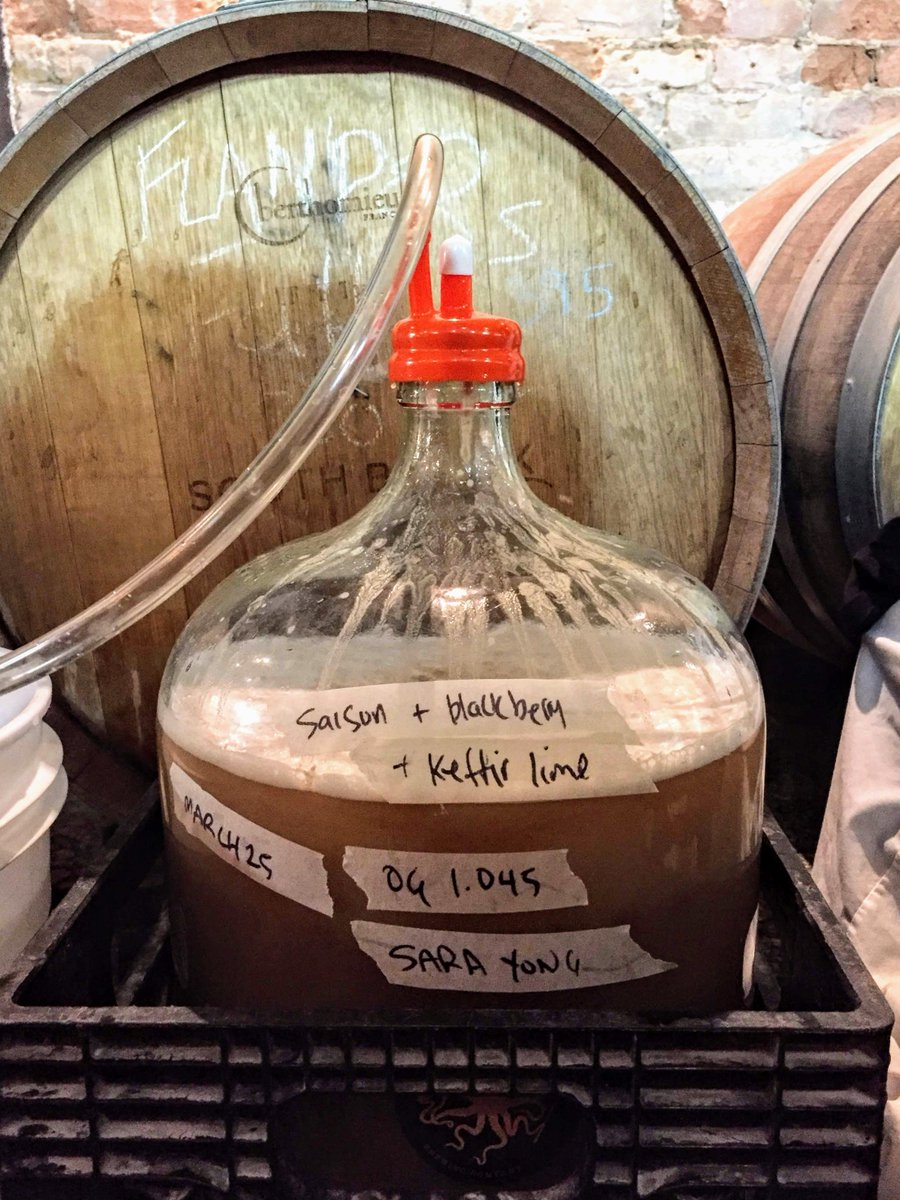 FLANDRS
berthomieu
FRANCE
SOUTH B
saison + blackberry
+ Keffir lime
MARCH 25
OG 1.045
SARA YONG